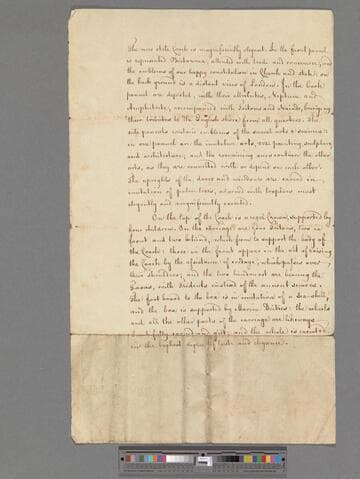 The new state Coach is magnificently elegant. In the front pannel
is represented Britannia, attended with trade and commerce; and
the emblems of our happy constitution in Church and state: on
the back ground is a distant view of London. In the back
pannel are depicted, with their attributes, Neptune and
Amphitrite, accompanied with Tritons and Naiads, bringing
their tributes to the English shore from all quarters. The
side pannels contain emblems of the several arts & sciences:
in one pannel are the imitative arts, viz: painting, sculpture,
and architecture; and the remaining ones contain the other
arts, as they are connected with or depend on each other.
The uprights of the doors and windows are carved in
imitation of palm trees, adorned with trophies most
elegantly and magnificently executed.
On the top of the Coach is a regal Crown, supported by
four children. On the carriage are four Tritons, two in
front and two behind, which seem to support the body of
the Coach: those in the front appear in the act of raising
the Coach by the assistance of cordage, which passes over
their shoulders; and the two hindmost are bearing the
Fasces, with Tridents instead of the ancient
The foot board to the box is in imitation of a scar-shell,
and the box is supported by Marine Deities: the wheels
and all the other parts of the carriage are likewise
beautifully carved and gilt; and the whole is executed
in the highest degree of taste and elegance.